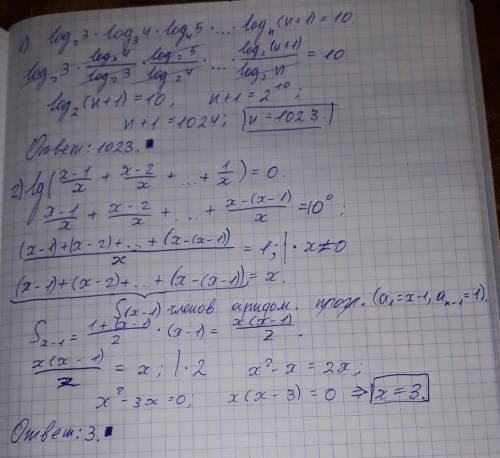 1) log₂3 · log₃4 · log₄5 · ... · logₙ(n+1) = 10.
log₂3 · log₂4/log₂3 · log₂5/log₂4 · ... · log₂(n+1)/log₂n = 10
log₂(n+1) = 10, n+1 = 2¹⁰;
n+1 = 1024; n = 1023.
Ответ: 1023.
2) lg((x-1)/x + (x-2)/x + ... + 1/x) = 0.
(x-1)/x + (x-2)/x + ... + (x-(x-1))/x = 10⁰;
((x-1)+(x-2)+...+(x-(x-1)))/x = 1; | · x≠0
(x-1)+(x-2)+...+(x-(x-1)) = x.
S(x-1) членов арифм. прогр. (a₁=x-1, aₓ₋₁=1).
Sₓ₋₁ = (1+(x-1))/2 · (x-1) = x(x-1)/2.
x(x-1)/2 = x; | · 2 x²-x = 2x;
x²-3x=0; x(x-3)=0 ⇒ x=3.
Ответ: 3.